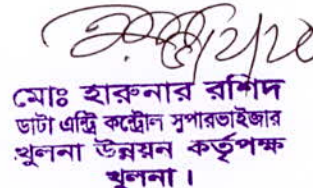 মোঃ হারুনার রশিদ
ডাটা এন্ট্রি কন্ট্রোল সুপারভাইজার
খুলনা উন্নয়ন কর্তৃপক্ষ
খুলনা।